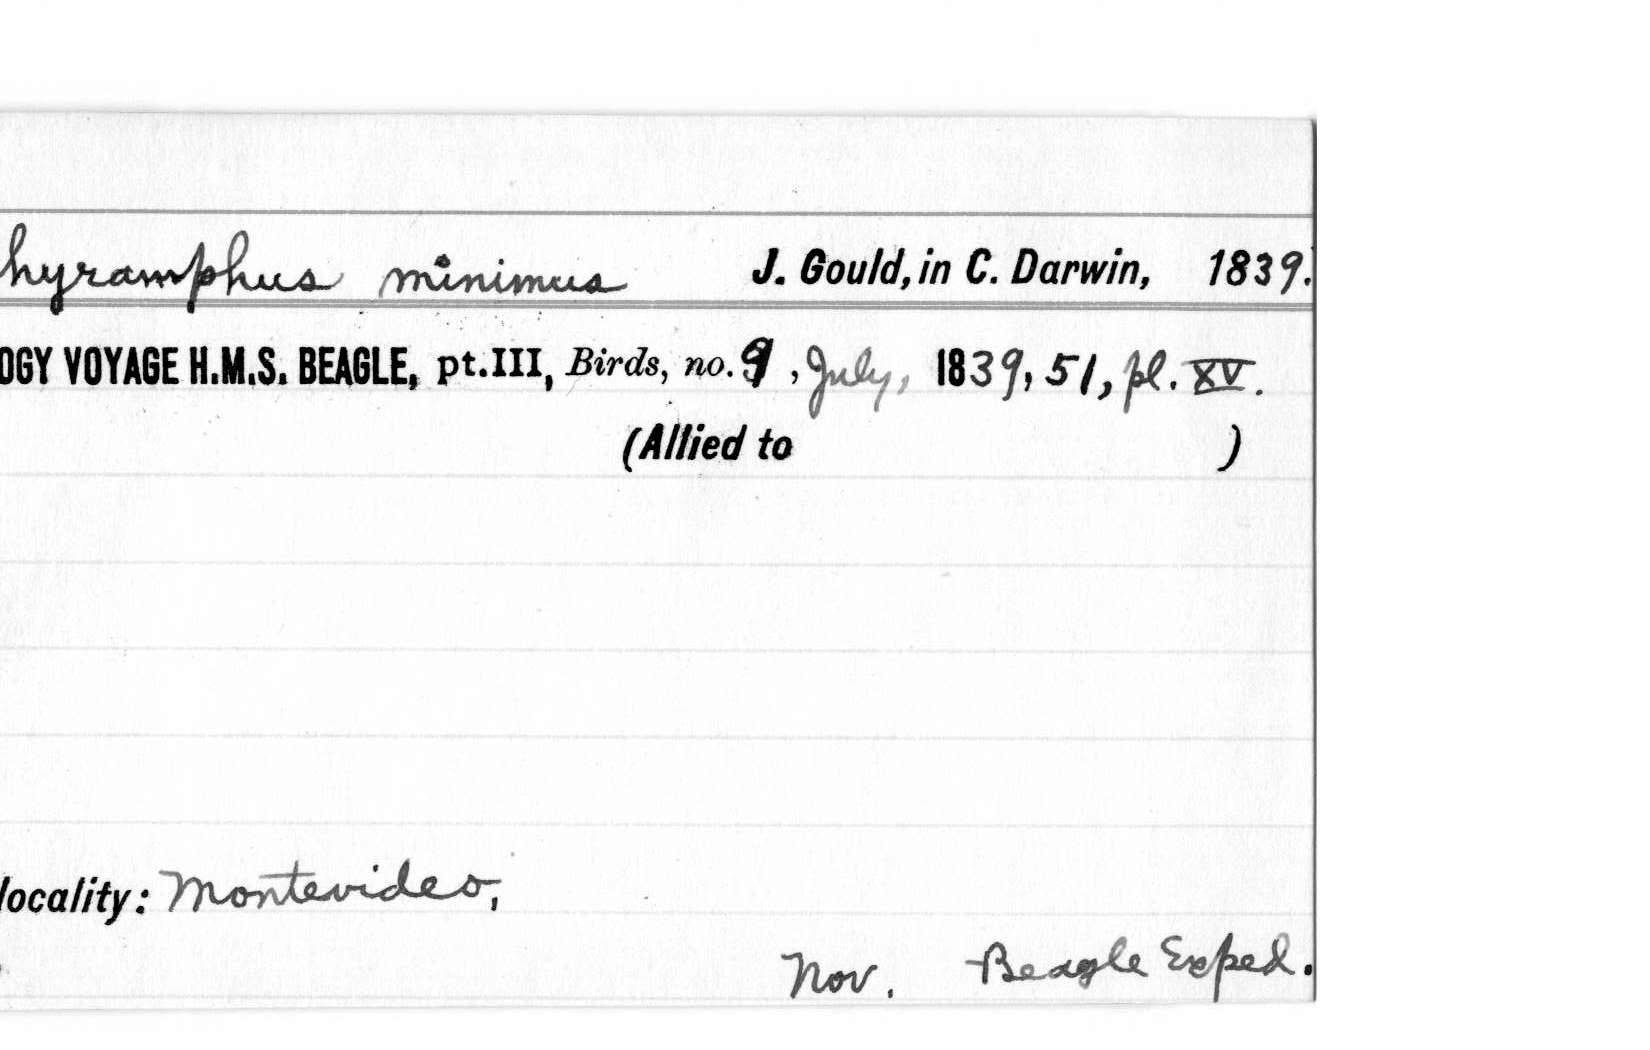 hyramphus minimus J. Gould, in C. Darwin, 1839.
OGY VOYAGE H.M.S. BEAGLE, pt.III, Birds, no. 9, July, 1839, 51, pl. XV.
(Allied to )
locality: Montevideo,
Nov. Beagle Exped.